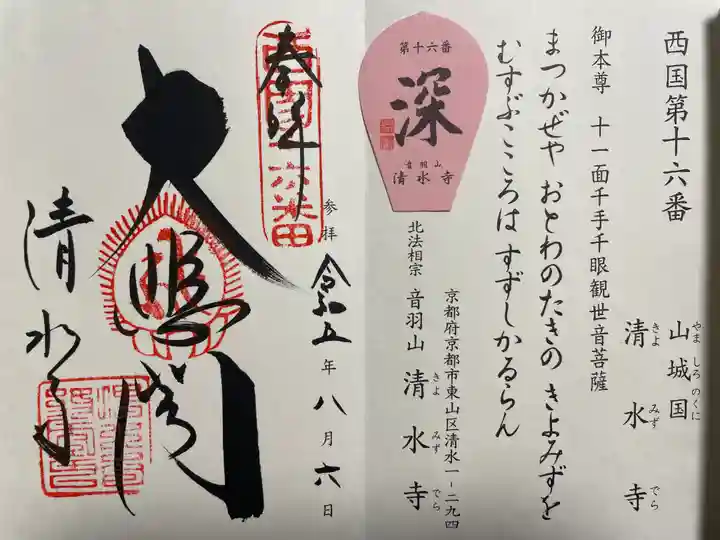 西国第十六番
山城国
やましろのくに
清水寺
きよみずでら
御本尊 十一面千手千眼観世音菩薩
まつかぜや おとわのたきの きよみずを
むすぶこころは すずしかるらん
京都府京都市東山区清水一-二九四
北法相宗 音羽山 清水寺
きよみずでら
第十六番
深
音羽山
清水寺
奉拝
西国十六番
参拝 令和五年八月六日
大悲閣
清水寺